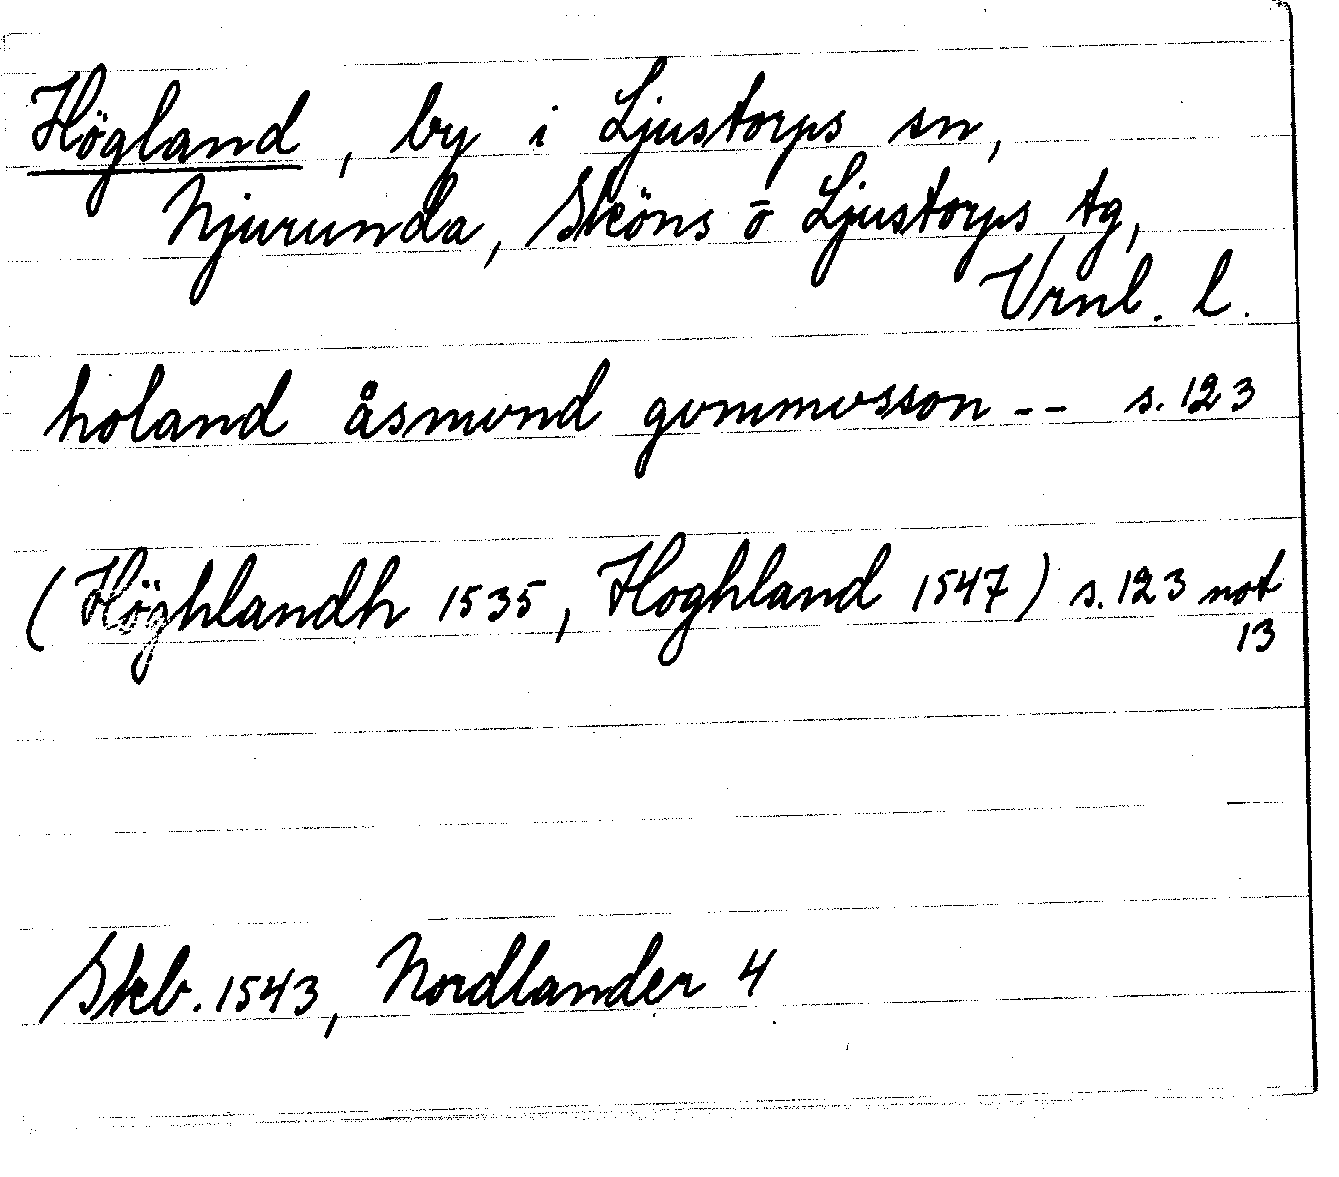 Högland, by i Ljustorps sn,
Njurunda, Sköns o Ljustorps tg,
Vrnl. l.
holand åsmvnd gvmmvsson -- s. 123
(Höghlandh 1535, Hoghland 1547) s. 123 not
13
Skb. 1543, Nordlander 4